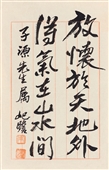 放懷於天地外
得氣在山水間
子源先生屬